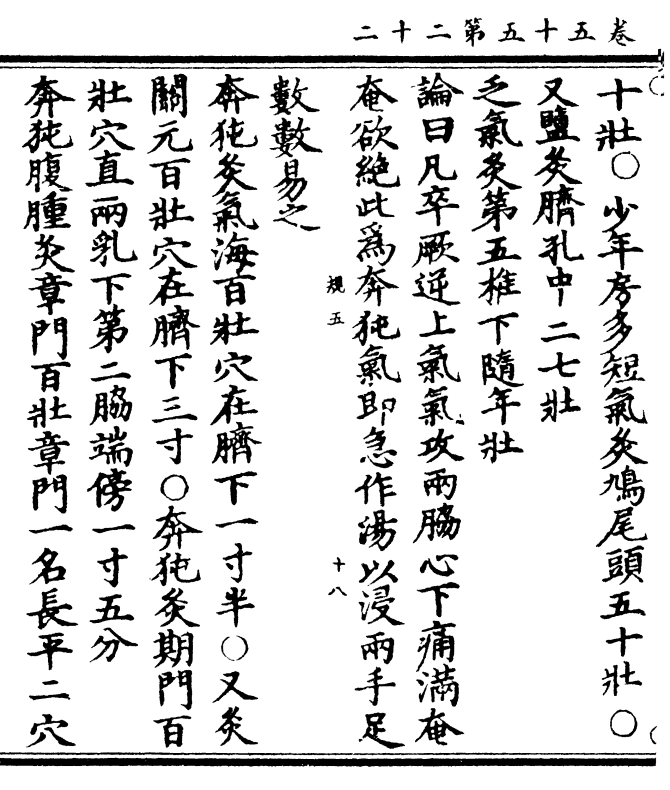 卷五十五第二十二
十壯○少年房多短氣灸鳩尾頭五十壯○
又鹽灸臍孔中二七壯
乏氣灸第五椎下隨年壯
論曰凡卒厥逆上氣氣攻兩脇心下痛滿奄
奄欲絶此爲奔㹠氣即急作湯以浸兩手足
規五
十八
數數易之
奔㹠灸氣海百壯穴在臍下一寸半○又灸
關元百壯穴在臍下三寸○奔㹠灸期門百
壯穴直兩乳下第二脇端傍一寸五分
奔㹠腹腫灸章門百壯章門一名長平二穴